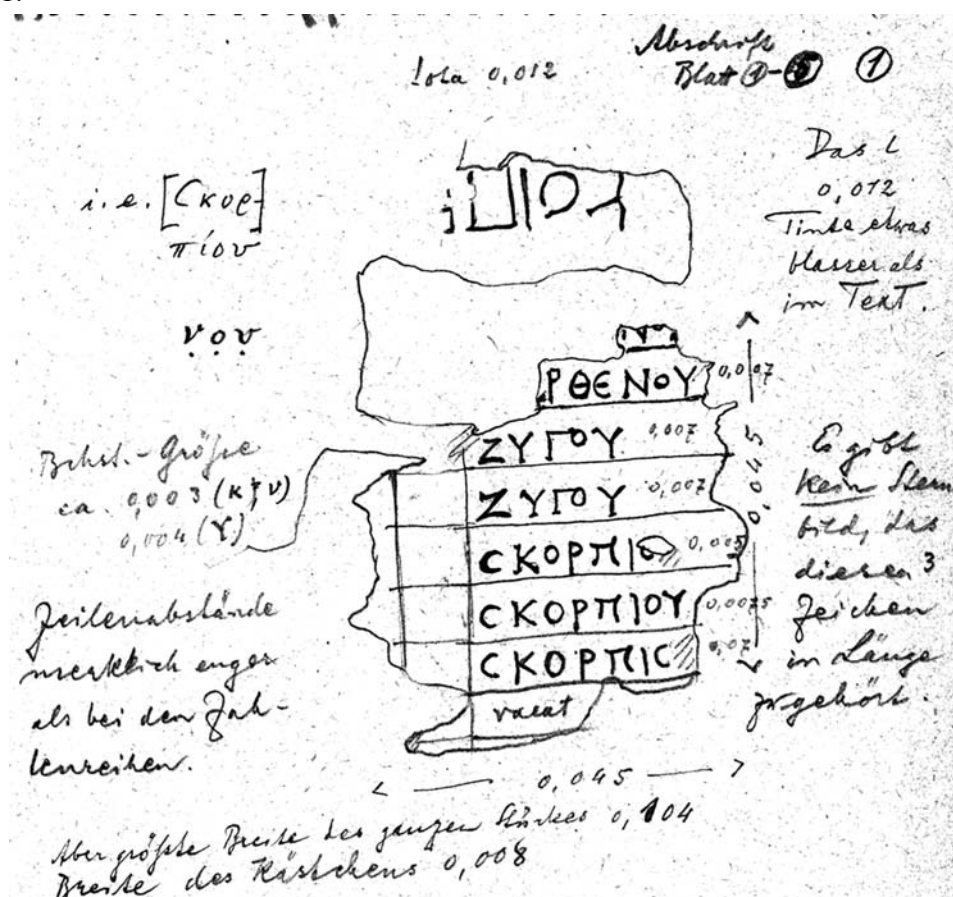 Iota 0,012
Abschrift
Blatt ①-⑤ ①
Das ι
0,012
Tinte etwas
blasser als
im Text.
i.e. [Σκορ-]
πίου
ν̣ο̣υ̣
ΡΘΕΝΟΥ 0,007
ΖΥΓΟΥ 0,007
ΖΥΓΟΥ 0,007
ϹΚΟΡΠΙΟ 0,005
ϹΚΟΡΠΙΟΥ 0,0075
ϹΚΟΡΠΙϹ 0,07
vacat
0,045
Bchst.-Größe
ca. 0,003
0,004 (Υ)
Zeilenabstände
merklich enger
als bei den Zah-
lenreihen.
Es gibt
kein Stern
bild, das
diesen 3
Zeichen
in Länge
zugehört.
0,045
Aber größte Breite des ganzen Stückes 0,104
Breite des Kästchens 0,008